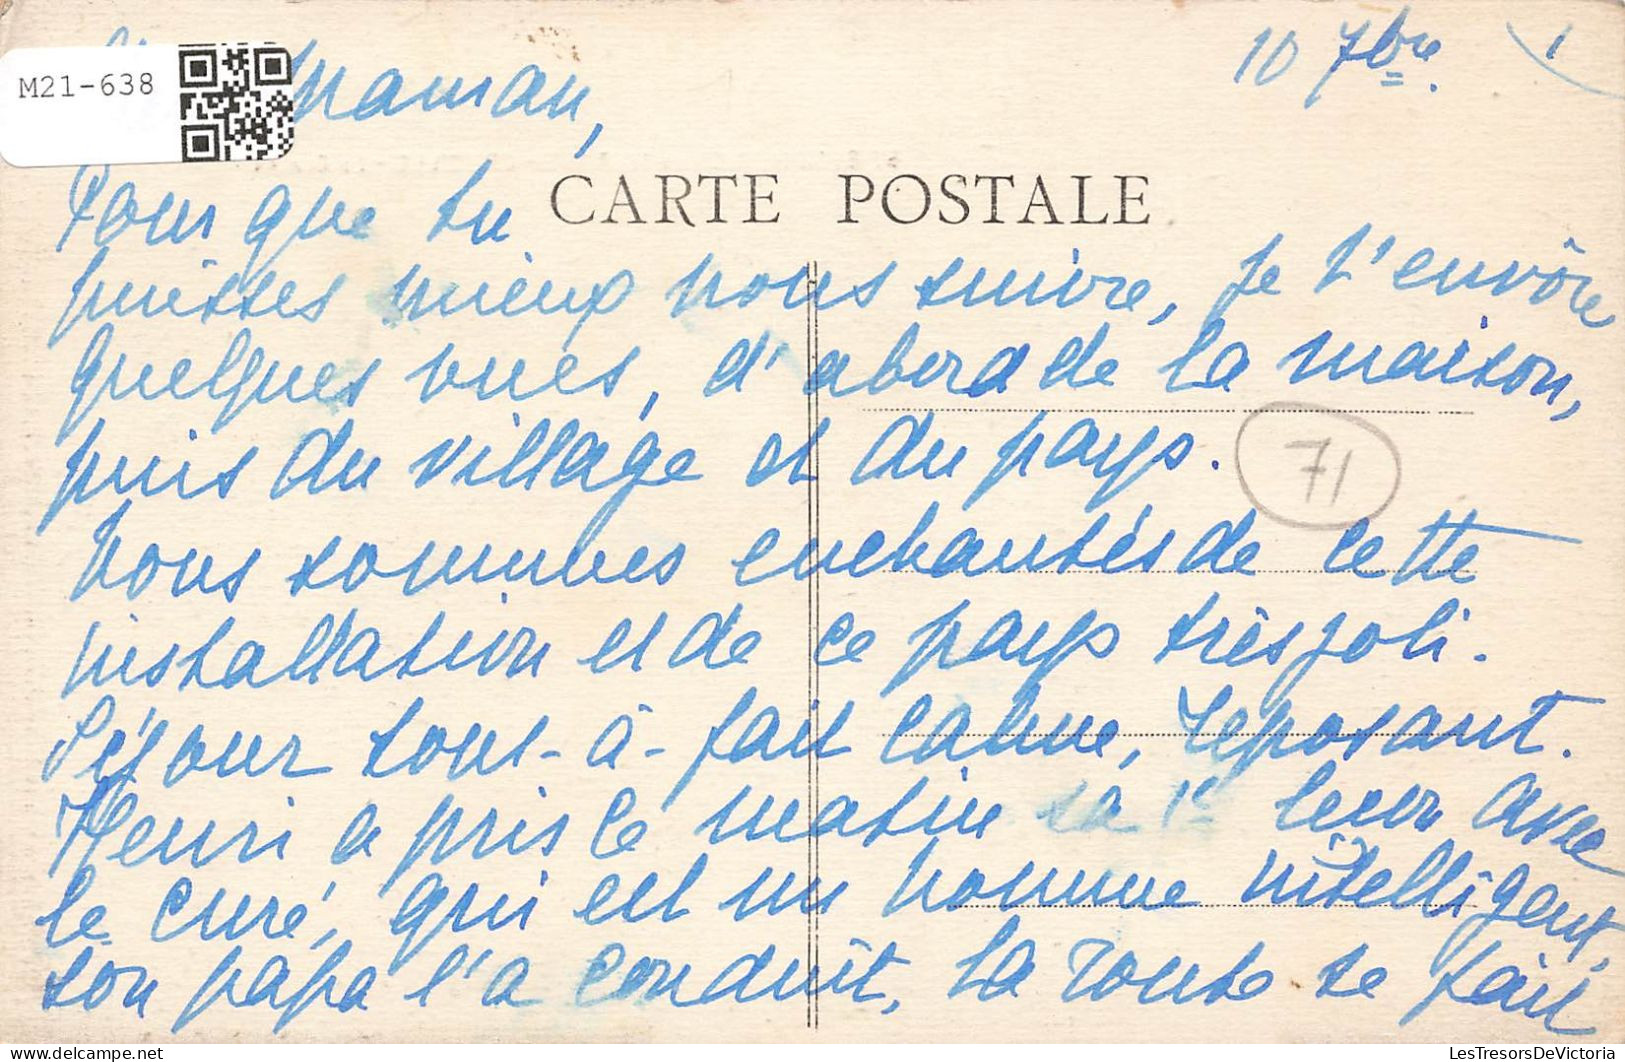 M21-638
10 7bre.
1
maman,
CARTE POSTALE
Pour que tu
puisses mieux nous suivre, je t'envoie
quelques vues, d'abord de la maison,
puis du village et du pays.
71
Nous sommes enchantés de cette
installation et de ce pays très joli.
Séjour tout-à-fait calme, reposant.
Henri a pris ce matin sa 1e leçon avec
le curé, qui est un homme intelligent,
son papa l'a conduit, la route se fait
LesTresorsDeVictoria